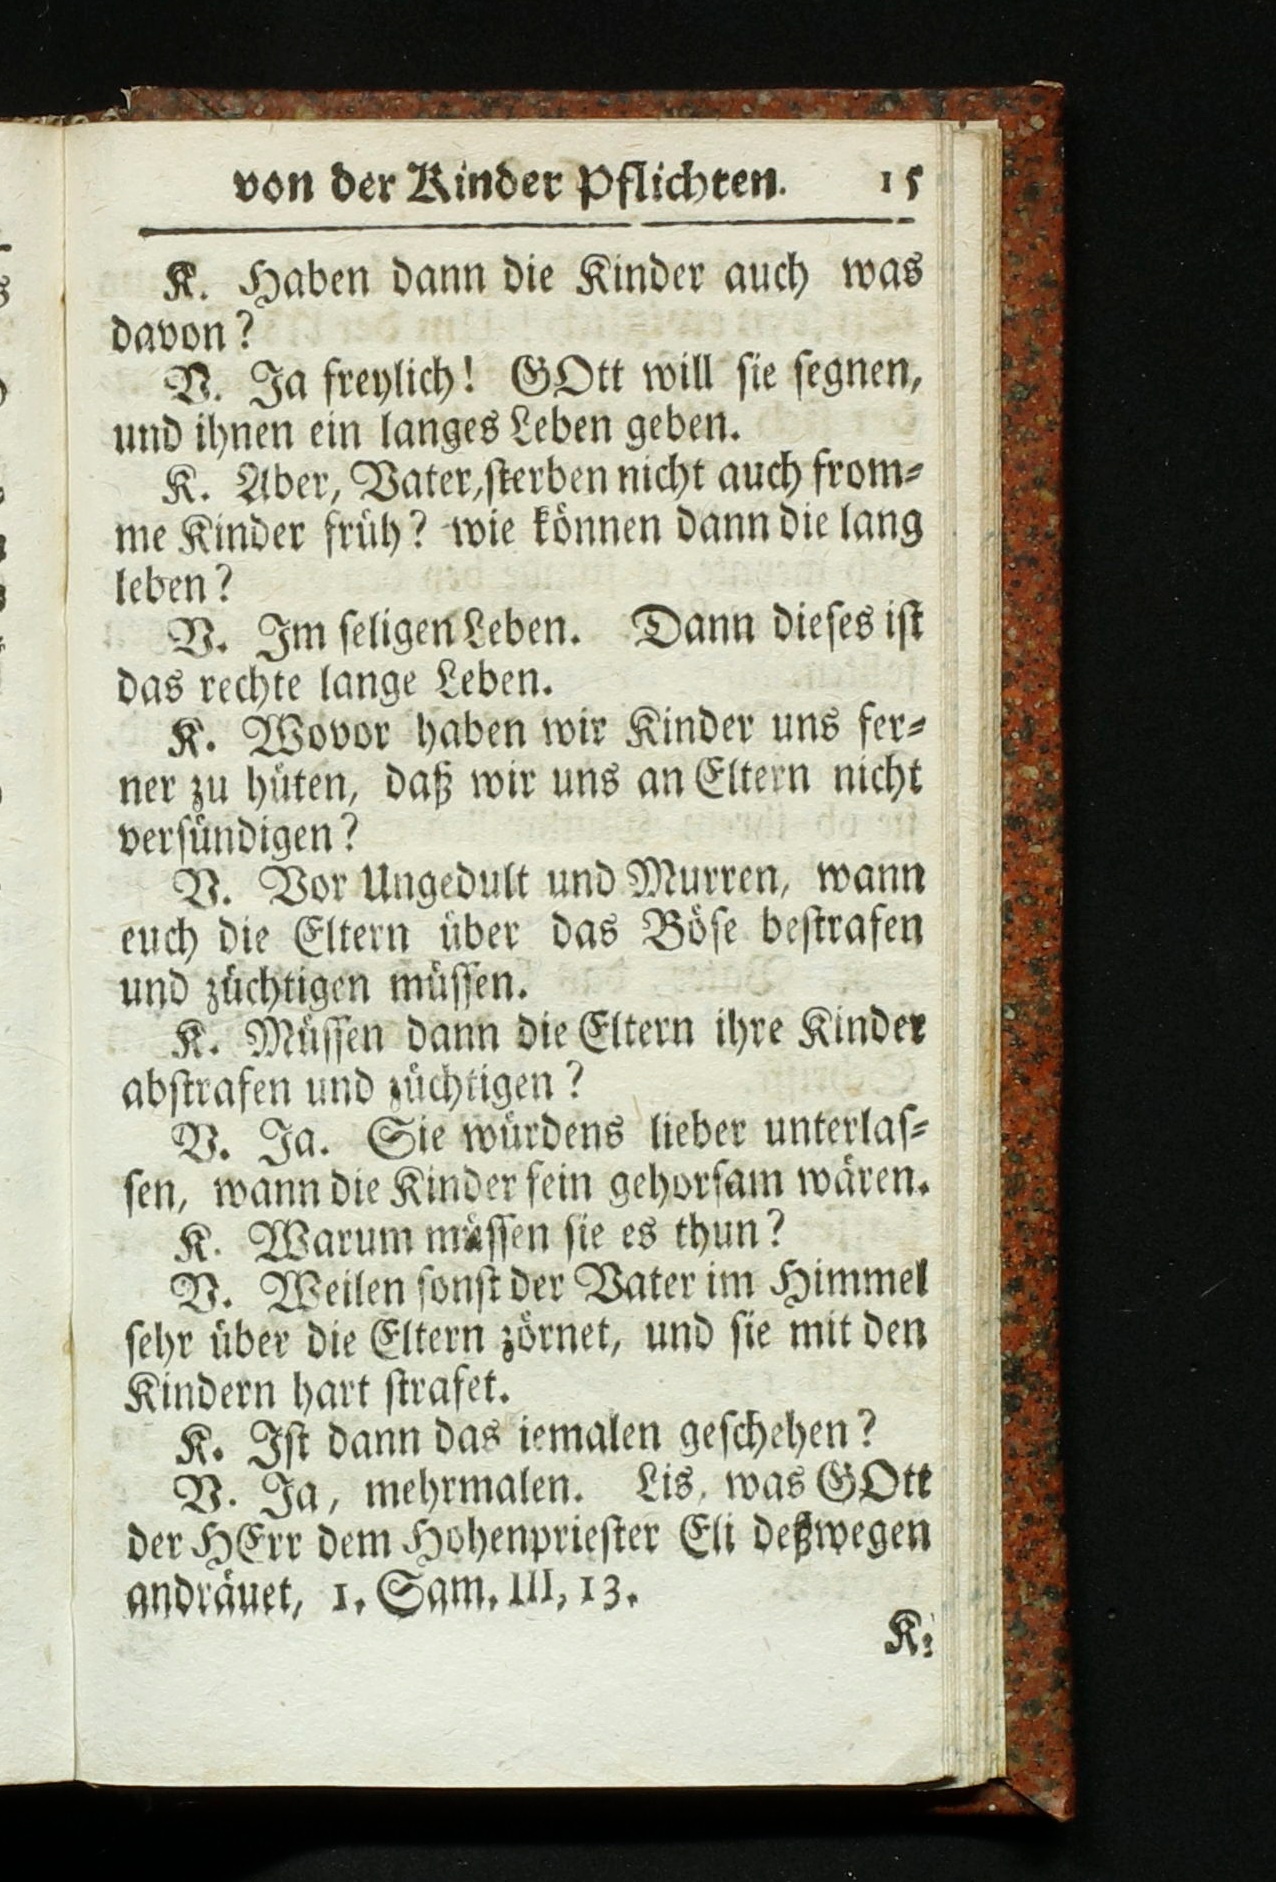 von der Kinder Pflichten. 15
K. Haben dann die Kinder auch was
davon?
V. Ja freylich! GOtt will ſie ſegnen,
und ihnen ein langes Leben geben.
K. Aber, Vater, ſterben nicht auch from⸗
me Kinder früh? wie können dann die lang
leben?
V. Im ſeligen Leben. Dann dieſes iſt
das rechte lange Leben.
K. Wovor haben wir Kinder uns fer⸗
ner zu hüten, daß wir uns an Eltern nicht
verſündigen?
V. Vor Ungedult und Murren, wann
euch die Eltern über das Böſe beſtrafen
und züchtigen müſſen.
K. Müſſen dann die Eltern ihre Kinder
abſtrafen und züchtigen?
V. Ja. Sie würdens lieber unterlaſ⸗
ſen, wann die Kinder fein gehorſam wären.
K. Warum müſſen ſie es thun?
V. Weilen ſonſt der Vater im Himmel
ſehr über die Eltern zörnet, und ſie mit den
Kindern hart ſtrafet.
K. Iſt dann das iemalen geſchehen?
V. Ja, mehrmalen. Lis, was GOtt
der HErr dem Hohenprieſter Eli deßwegen
andräuet, 1. Sam. III, 13.
K.